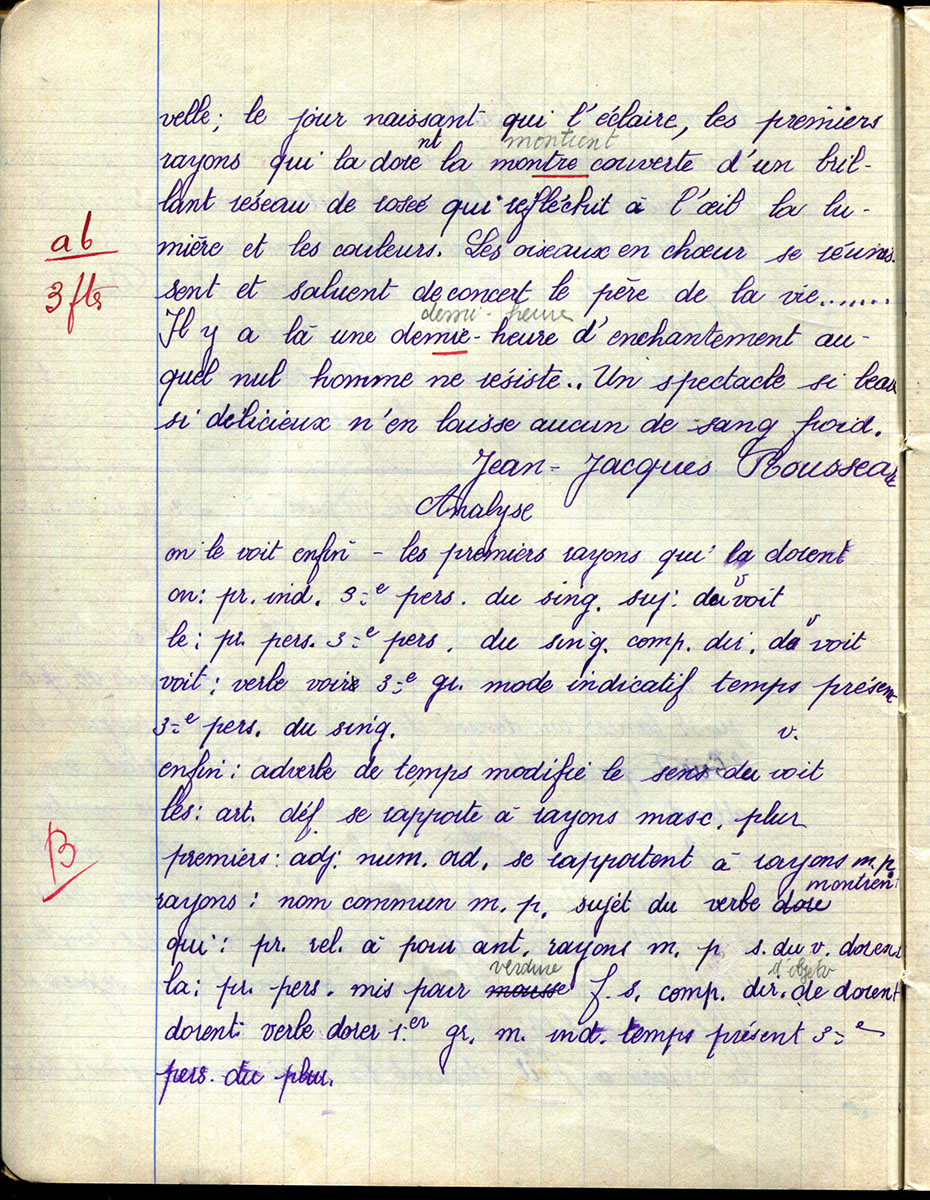 velle; le jour naissant qui l'éclaire, les premiers
nt montrent
rayons qui la dore la montre couverte d'un bril-
lant réseau de rosée qui réfléchit à l'œil la lu-
ab
mière et les couleurs. Les oiseaux en chœur se réunis-
3 ftes
sent et saluent de concert le père de la vie.......
demi-heure
Il y a là une demie-heure d'enchantement au-
quel nul homme ne résiste.. Un spectacle si beau
si délicieux n'en laisse aucun de sang froid.
Jean-Jacques Rousseau
Analyse
on le voit enfin - les premiers rayons qui la dorent
on: pr. ind. 3=e pers. du sing. suj. du v voit
le: pr. pers. 3=e pers. du sing. comp. dir. du v voit
voit: verbe voir 3=e gr. mode indicatif temps présent
3=e pers. du sing.
v.
enfin: adverbe de temps modifie le sens du voit
les: art. déf. se rapporte à rayons masc. plur
B
premiers: adj. num. ord. se rapportent à rayons m.p.
montrent
rayons: nom commun m. p. sujet du verbe dore
qui: pr. rel. a pour ant. rayons m. p. s. du v. dorent
verdure d'objet
la: pr. pers. mis pour mousse f. s. comp. dir. de dorent
dorent: verbe dorer 1.er gr. m. ind. temps présent 3=e
pers. du plur.